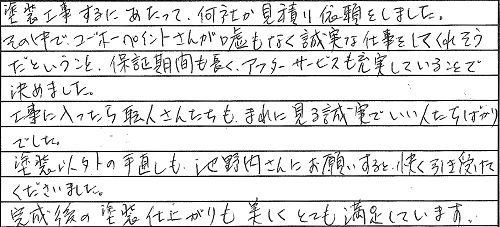 塗装工事するにあたって、何社か見積り依頼をしました。
その中で、ユーホーペイントさんが嘘もなく誠実な仕事をしてくれそう
だということ、保証期間も長く、アフターサービスも充実していることで
決めました。
工事に入ったら職人さんたちも、まれに見る誠実でいい人たちばかり
でした。
塗装以外の手直しも、池野内さんにお願いすると、快く引き受けて
くださいました。
完成後の塗装仕上がりも美しくとても満足しています。